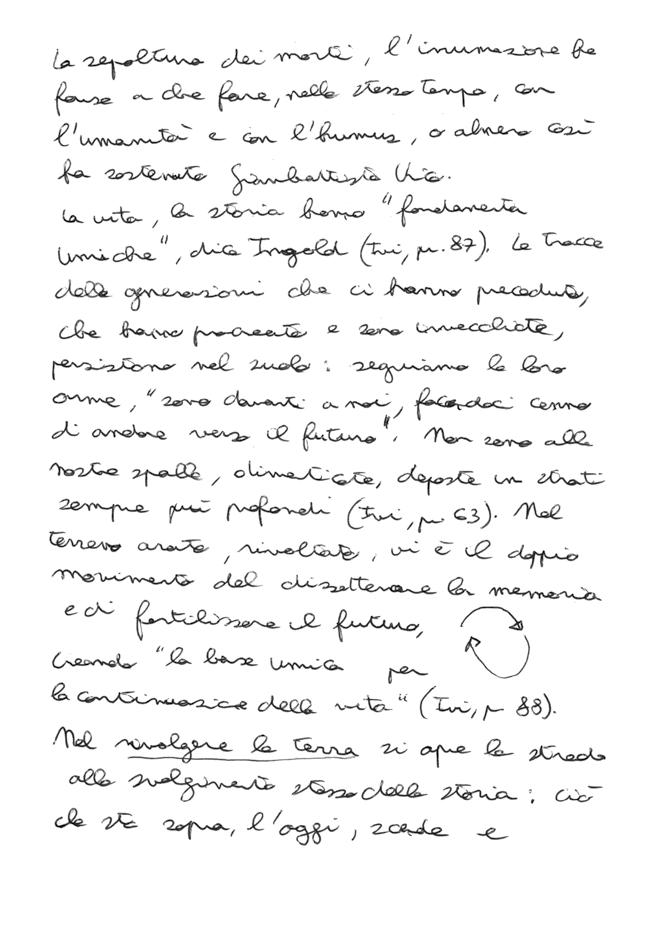 La sepoltura dei morti, l'inumazione ha
forse a che fare, nello stesso tempo, con
l'umanità e con l'humus, o almeno così
ha sostenuto Giambattista Vico.
La vita, la storia hanno "fondamenta
umiche", dice Ingold (Ivi, p. 87). Le tracce
delle generazioni che ci hanno preceduto,
che hanno procreato e sono invecchiate,
persistono nel suolo: seguiamo le loro
orme, "sono davanti a noi, facendoci cenno
di andare verso il futuro". Non sono alle
nostre spalle, dimenticate, deposte in strati
sempre più profondi (Ivi, p. 63). Nel
terreno arato, rivoltato, vi è il doppio
movimento del dissotterrare la memoria
e di fertilizzare il futuro,
creando "la base umica per
la continuazione della vita" (Ivi, p 88).
Nel rivolgere la terra si apre la strada
allo svolgimento stesso della storia: ciò
che sta sopra, l'oggi, scende e